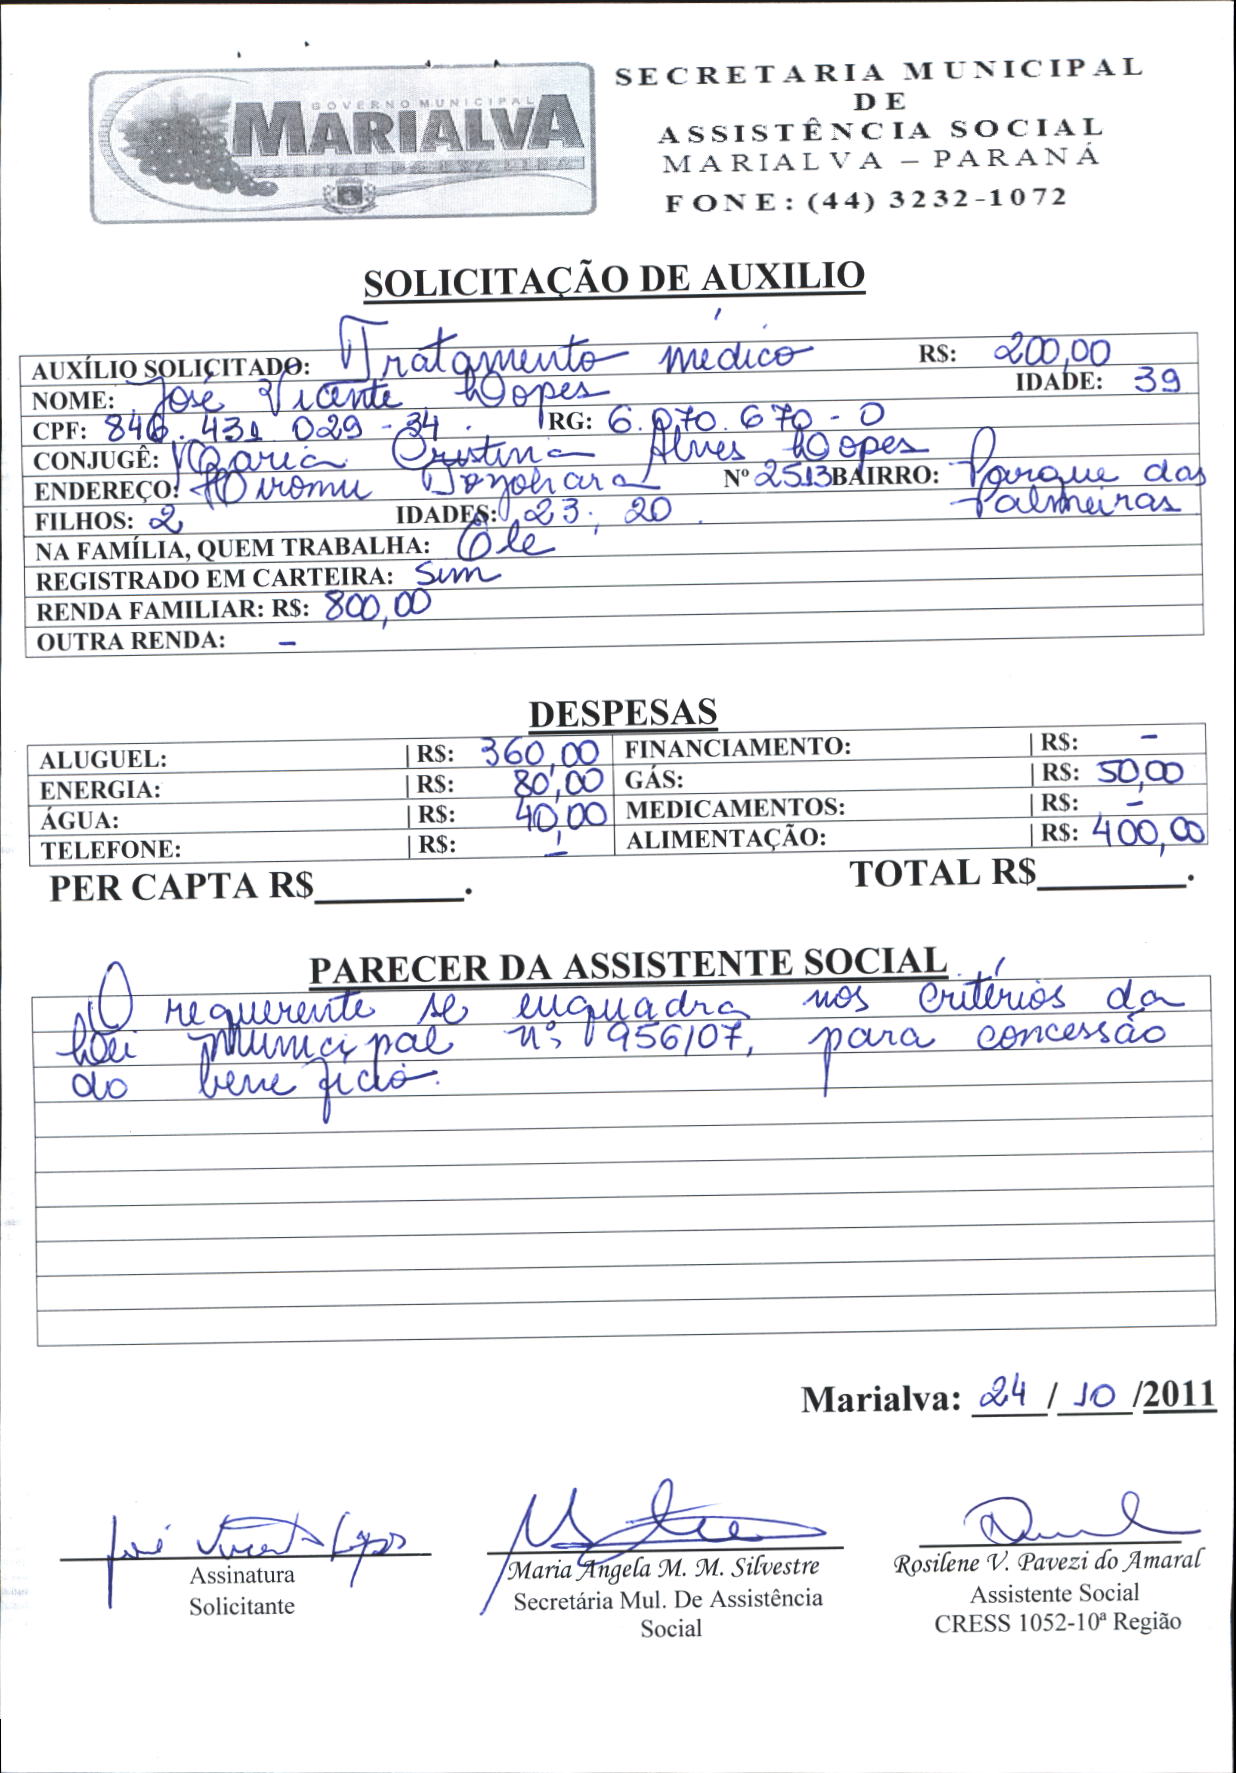 GOVERNO MUNICIPAL
MARIALVA
CAPITAL DA UVA FINA
SECRETARIA MUNICIPAL
DE
ASSISTÊNCIA SOCIAL
MARIALVA – PARANÁ
FONE: (44) 3232-1072
SOLICITAÇÃO DE AUXILIO
AUXÍLIO SOLICITADO: Tratamento médico R$: 200,00
NOME: José Vicente Lopes IDADE: 39
CPF: 846.431 029-34. RG: 6.070.670-0
CONJUGÊ: Maria Cristina Alves Lopes
ENDEREÇO: Hiromu Nº 2513 BAIRRO: Parque das
Palmeiras
FILHOS: 2 IDADES: 23, 20.
NA FAMÍLIA, QUEM TRABALHA: Ele
REGISTRADO EM CARTEIRA: Sim
RENDA FAMILIAR: R$: 800,00
OUTRA RENDA: -
DESPESAS
ALUGUEL: | R$: 360,00 FINANCIAMENTO: | R$: -
ENERGIA: | R$: 80,00 GÁS: | R$: 50,00
ÁGUA: | R$: 40,00 MEDICAMENTOS: | R$: -
TELEFONE: | R$: - ALIMENTAÇÃO: | R$: 400,00
PER CAPTA R$________. TOTAL R$________.
PARECER DA ASSISTENTE SOCIAL
O requerente se enquadra nos critérios da
Lei Municipal nº 956/07, para concessão
do benefício.
Marialva: 24 / 10 /2011
José Vicente Lopes
Assinatura
Solicitante
Maria Ângela M. M. Silvestre
Secretária Mul. De Assistência
Social
Rosilene V. Pavezi do Amaral
Assistente Social
CRESS 1052-10ª Região